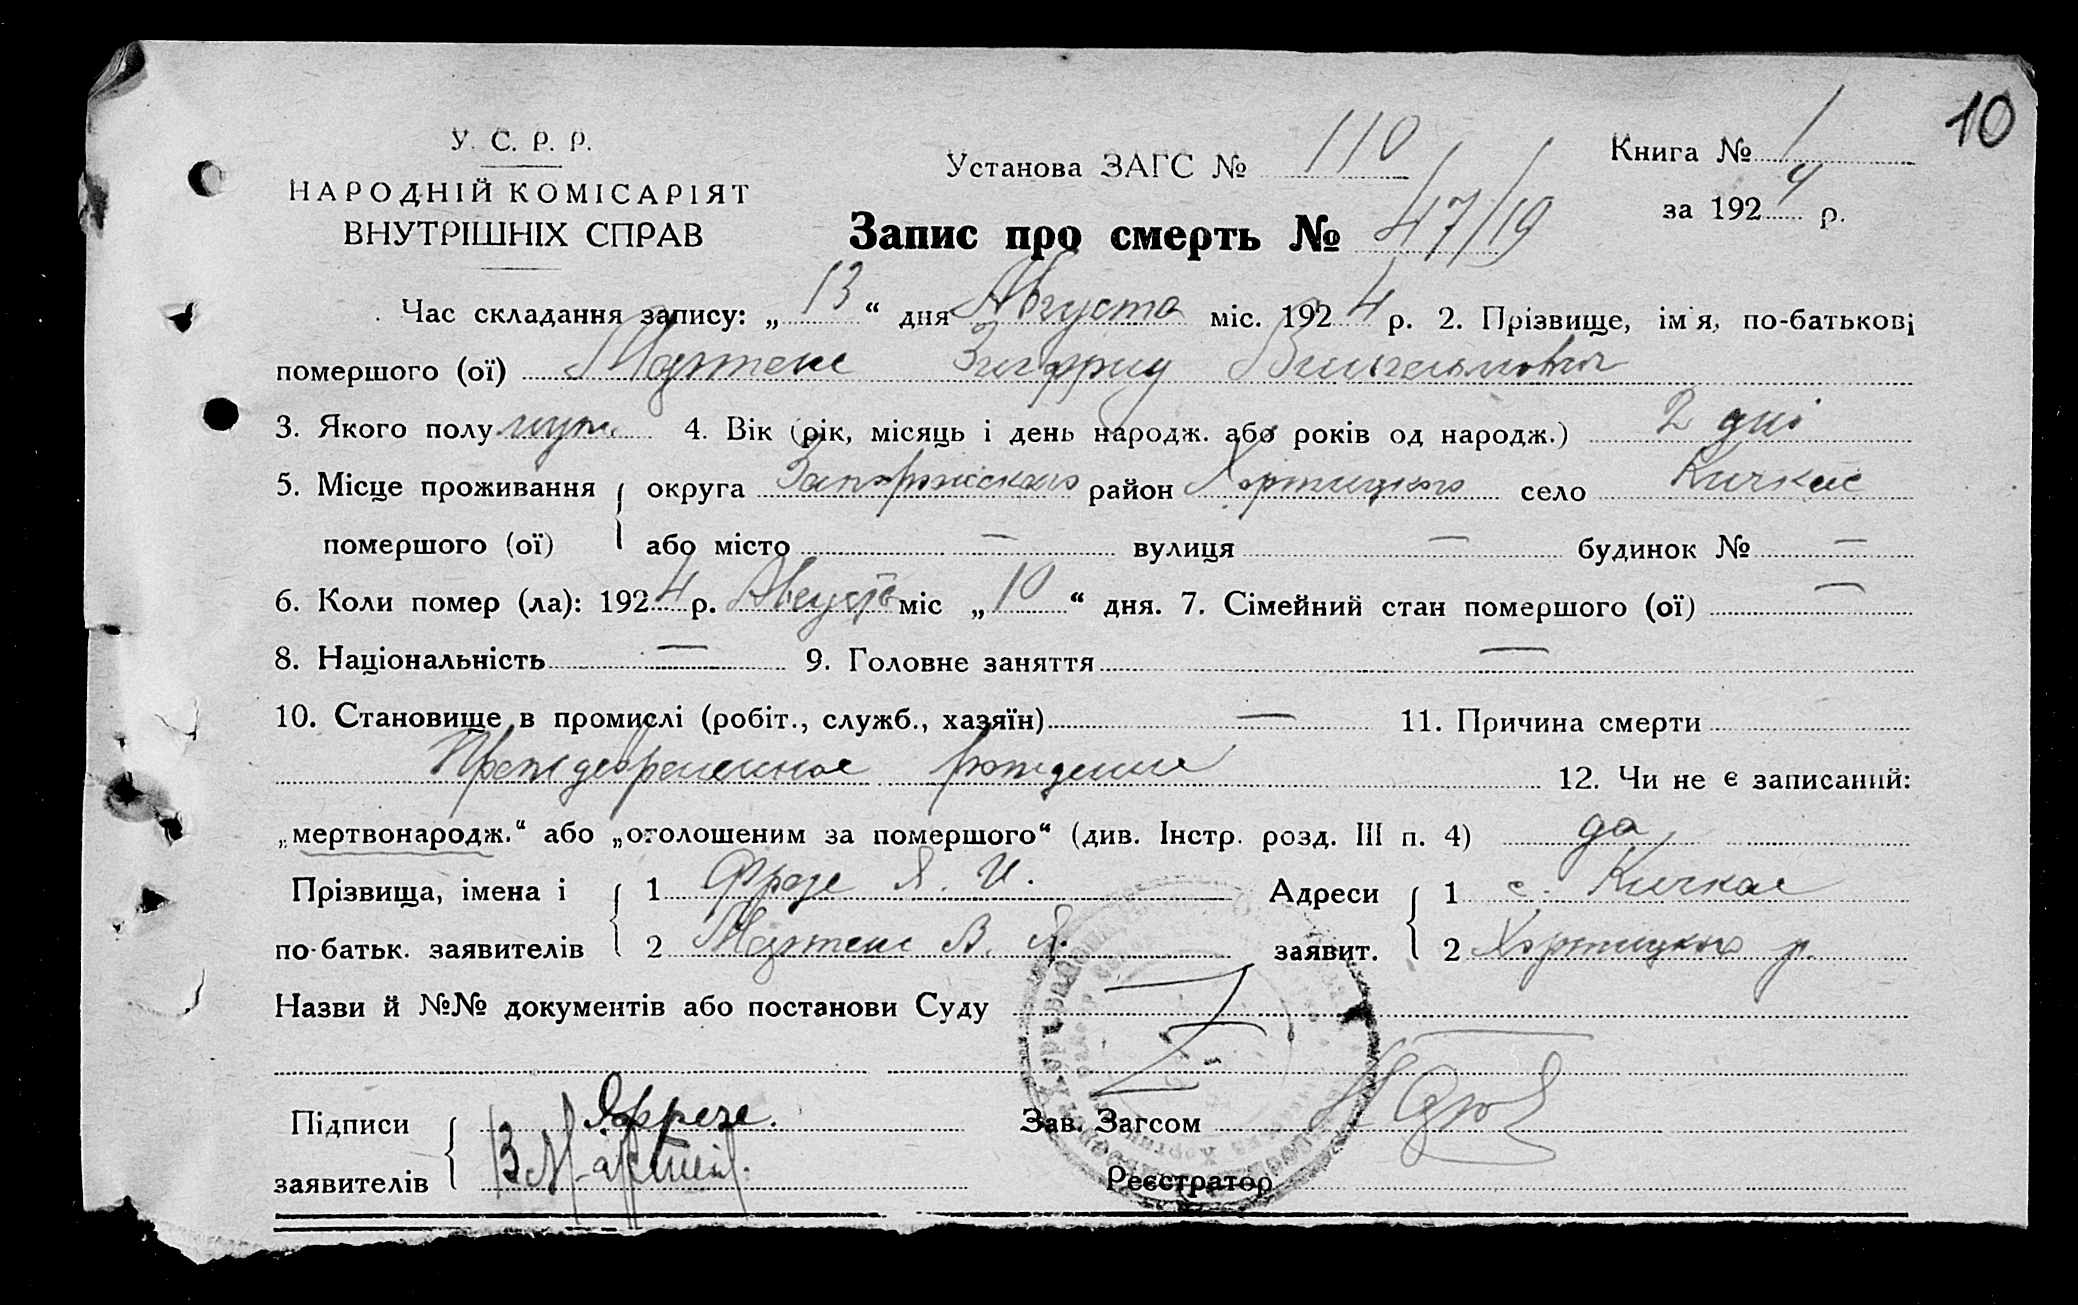 10
У. С. Р. Р.
НАРОДНІЙ КОМІСАРІЯТ
ВНУТРІШНІХ СПРАВ
Установа ЗАГС № 110
Книга № 1
за 1924 р.
Запис про смерть № 47/19
Час складання запису: „13“ дня Августа міс. 1924 р. 2. Прізвище, ім'я, по-батькові
помершого (ої) Мартенс Зигфрид Вильгельмович
3. Якого полу муж. 4. Вік (рік, місяць і день народж. або років од народж.) 2 дні
5. Місце проживання округа Запорожского район Хортицкого село Кичкас
помершого (ої) або місто — вулиця — будинок № —
6. Коли помер (ла): 1924 р. Августа міс „10“ дня. 7. Сімейний стан помершого (ої) —
8. Національність — 9. Головне заняття —
10. Становище в промислі (робіт., служб., хазяїн) — 11. Причина смерти
Преждевременное рождение 12. Чи не є записаний:
„мертвонародж.“ або „оголошеним за помершого“ (див. Інстр. розд. III п. 4) да
Прізвища, імена і 1 Фрезе Я. И. Адреси 1 с. Кичкас
по-батьк. заявителів 2 Мартенс В. Я. заявит. 2 Хортицкого р.
Назви й №№ документів або постанови Суду
Підписи Я Фрезе. Зав. Загсом
заявителів В Мартенс. Реєстратор